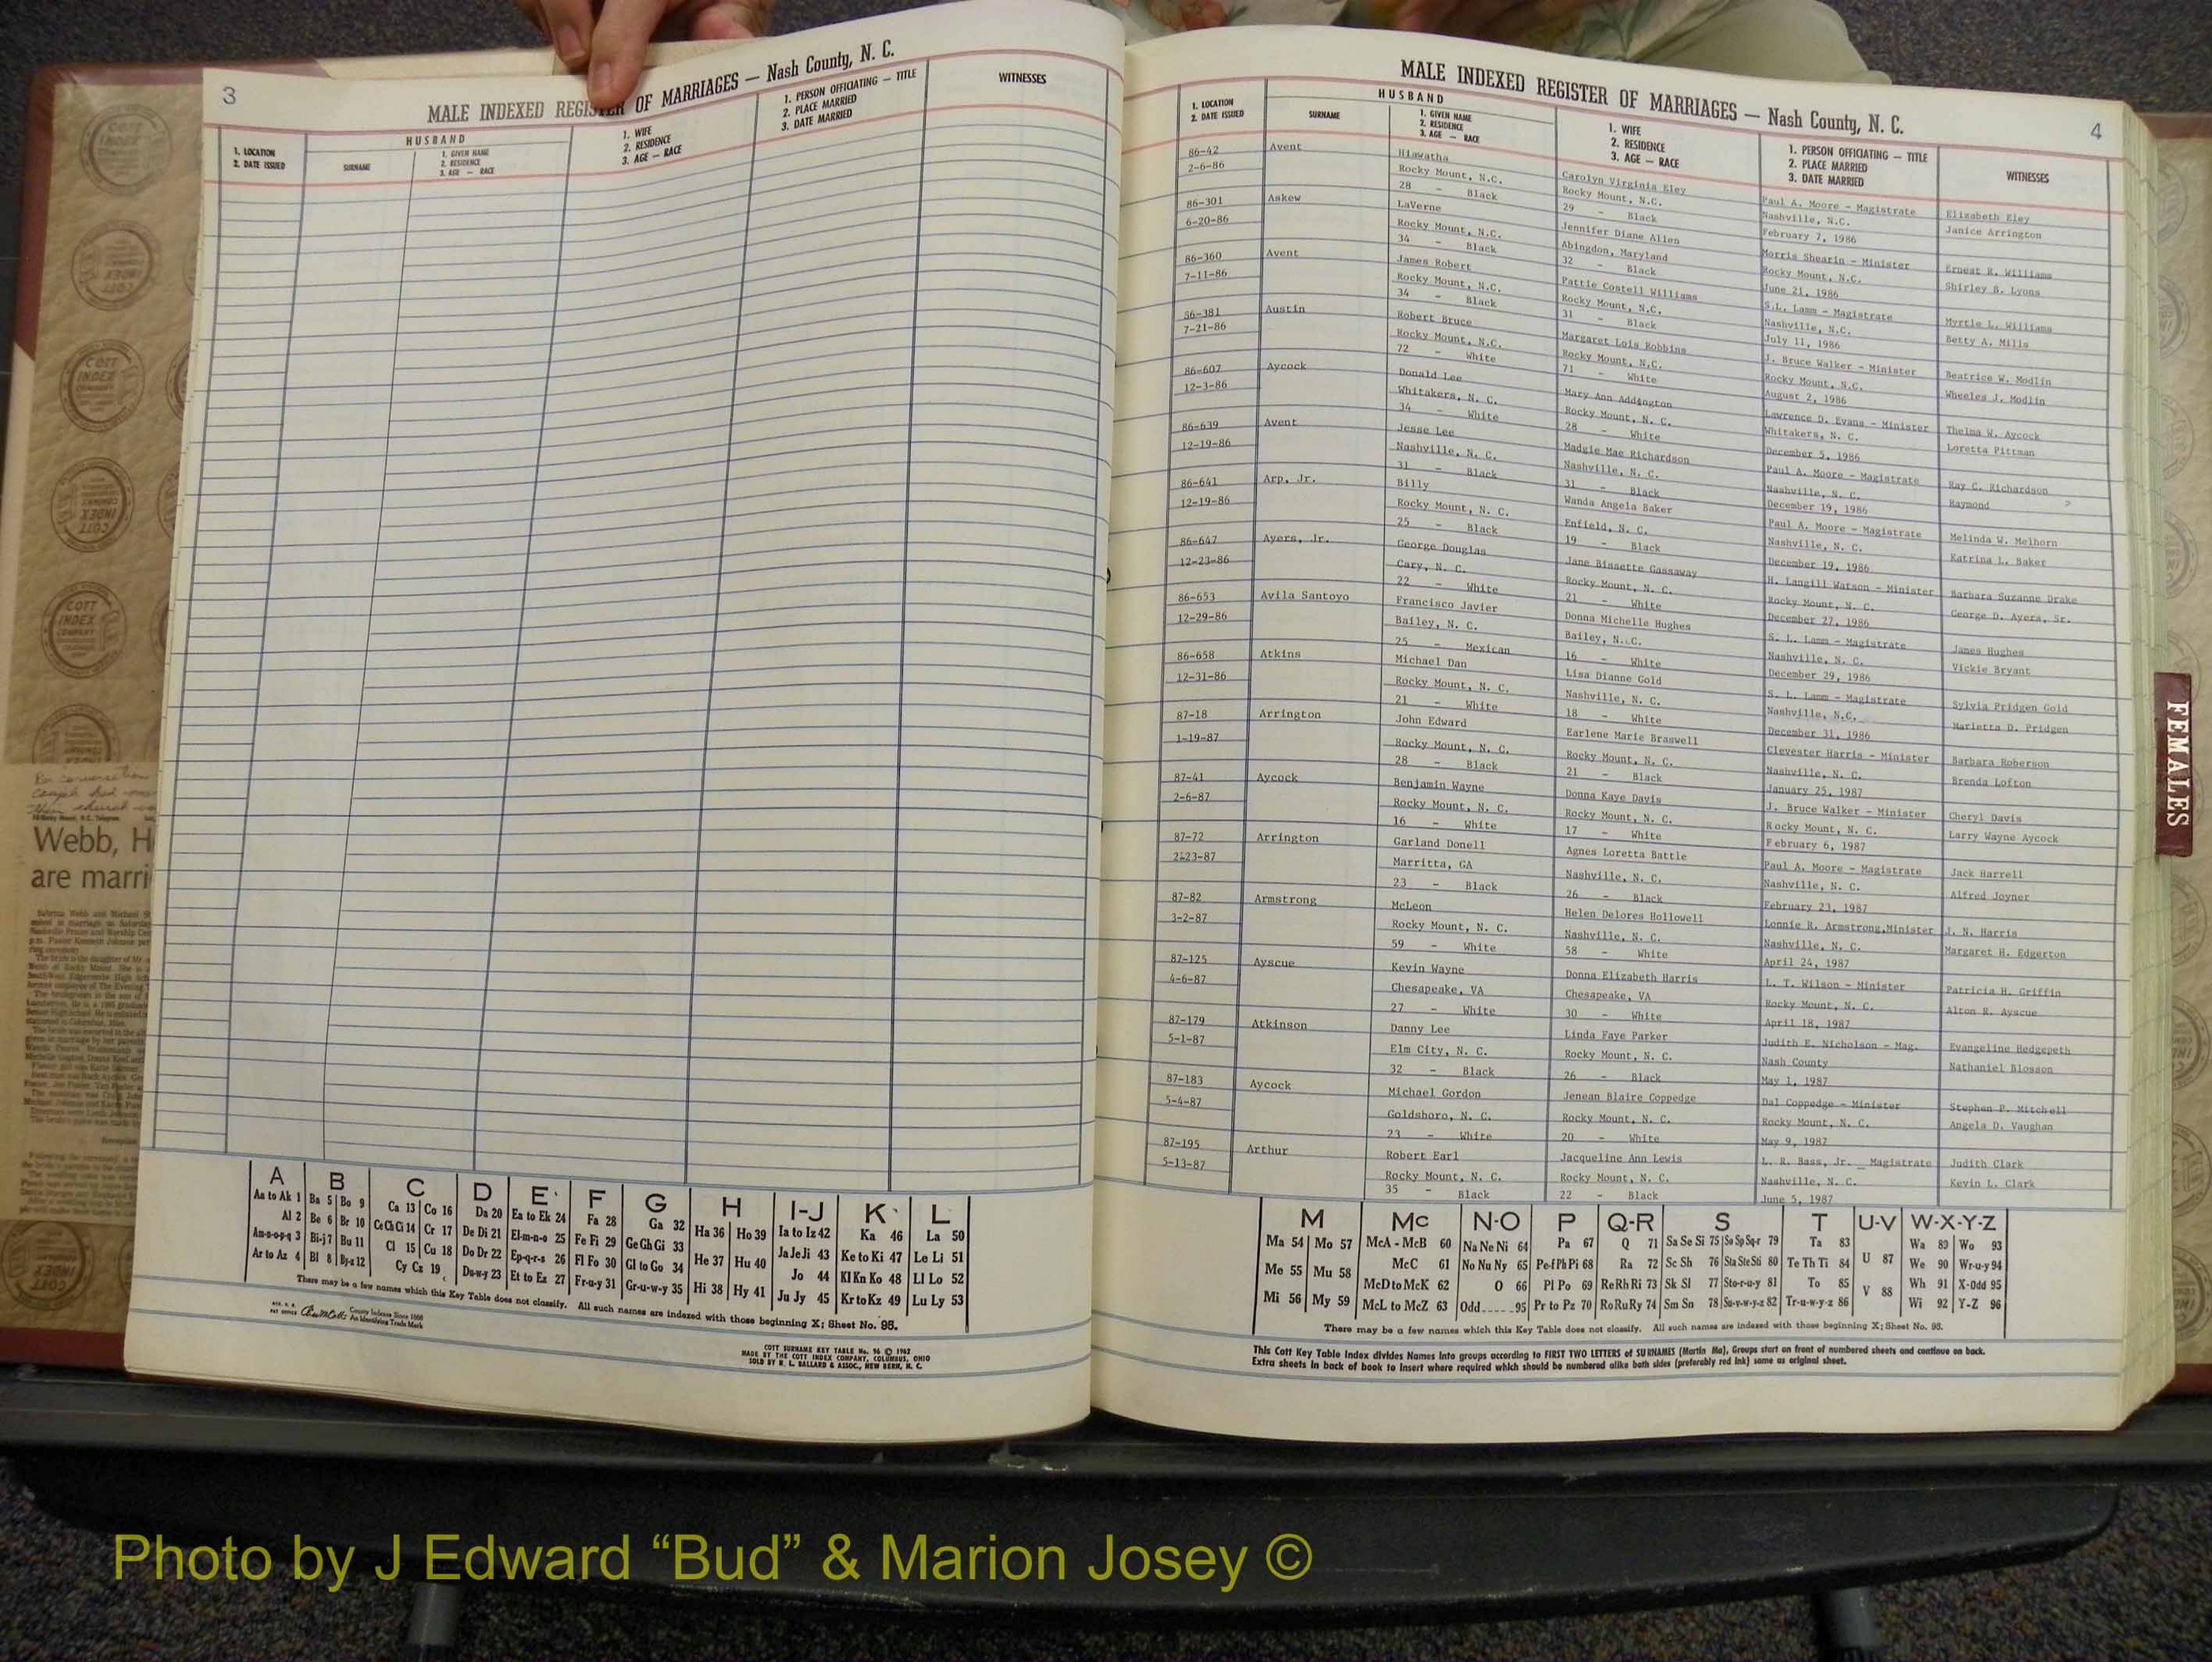 3
MALE INDEXED REGISTER OF MARRIAGES — Nash County, N. C.
1. LOCATION
2. DATE ISSUED
HUSBAND
SURNAME
1. GIVEN NAME
2. RESIDENCE
3. AGE — RACE
1. WIFE
2. RESIDENCE
3. AGE — RACE
1. PERSON OFFICIATING — TITLE
2. PLACE MARRIED
3. DATE MARRIED
WITNESSES
COTT
INDEX
COMPANY
Webb, H
are marri
A
Aa to Ak 1
Al 2
Am-n-o-p-q 3
Ar to Az 4
B
Ba 5 Bo 9
Be 6 Br 10
Bi-j 7 Bu 11
Bl 8 By-z 12
C
Ca 13 Co 16
Ce Ch Ci 14 Cr 17
Cl 15 Cu 18
Cy Cz 19
D
Da 20
De Di 21
Do Dr 22
Du-w-y 23
E
Ea to Ek 24
El-m-n-o 25
Ep-q-r-s 26
Et to Ez 27
F
Fa 28
Fe Fi 29
Fl Fo 30
Fr-u-y 31
G
Ga 32
Ge Gh Gi 33
Gl to Go 34
Gr-u-w-y 35
H
Ha 36 Ho 39
He 37 Hu 40
Hi 38 Hy 41
I-J
Ia to Iz 42
Ja Je Ji 43
Jo 44
Ju Jy 45
K
Ka 46
Ke to Ki 47
Kl Kn Ko 48
Kr to Kz 49
L
La 50
Le Li 51
Ll Lo 52
Lu Ly 53
There may be a few names which this Key Table does not classify. All such names are indexed with those beginning X; Sheet No. 95.
County Indexes Since 1888
An Identifying Trade Mark
COTT SURNAME KEY TABLE No. 96 © 1962
MADE BY THE COTT INDEX COMPANY, COLUMBUS, OHIO
SOLD BY R. L. BALLARD & ASSOC., NEW BERN, N. C.
MALE INDEXED REGISTER OF MARRIAGES — Nash County, N. C.
4
1. LOCATION
2. DATE ISSUED
HUSBAND
SURNAME
1. GIVEN NAME
2. RESIDENCE
3. AGE — RACE
1. WIFE
2. RESIDENCE
3. AGE — RACE
1. PERSON OFFICIATING — TITLE
2. PLACE MARRIED
3. DATE MARRIED
WITNESSES
86-42 Avent Hiawatha Carolyn Virginia Eley Paul A. Moore - Magistrate Elizabeth Eley
2-6-86 Rocky Mount, N.C. Rocky Mount, N.C. Nashville, N.C. Janice Arrington
28 - Black 29 - Black February 7, 1986
86-301 Askew LaVerne Jennifer Diane Allen Morris Shearin - Minister Ernest R. Williams
6-20-86 Rocky Mount, N.C. Abingdon, Maryland Rocky Mount, N.C. Shirley B. Lyons
34 - Black 32 - Black June 21, 1986
86-360 Avent James Robert Pattie Costell Williams S.L. Lamm - Magistrate Myrtle L. Williams
7-11-86 Rocky Mount, N.C. Rocky Mount, N.C. Nashville, N.C. Betty A. Mills
34 - Black 31 - Black July 11, 1986
86-381 Austin Robert Bruce Margaret Lois Robbins J. Bruce Walker - Minister Beatrice W. Modlin
7-21-86 Rocky Mount, N.C. Rocky Mount, N.C. Rocky Mount, N.C. Wheeles J. Modlin
72 - White 71 - White August 2, 1986
86-607 Aycock Donald Lee Mary Ann Addington Lawrence D. Evans - Minister Thelma W. Aycock
12-3-86 Whitakers, N. C. Rocky Mount, N. C. Whitakers, N. C. Loretta Pittman
34 - White 28 - White December 5, 1986
86-639 Avent Jesse Lee Madgie Mae Richardson Paul A. Moore - Magistrate Ray C. Richardson
12-19-86 Nashville, N. C. Nashville, N. C. Nashville, N. C. Raymond >
31 - Black 31 - Black December 19, 1986
86-641 Arp, Jr. Billy Wanda Angela Baker Paul A. Moore - Magistrate Melinda W. Melhorn
12-19-86 Rocky Mount, N. C. Enfield, N. C. Nashville, N. C. Katrina L. Baker
25 - Black 19 - Black December 19, 1986
86-647 Ayers, Jr. George Douglas Jane Bissette Gassaway H. Langill Watson - Minister Barbara Suzanne Drake
12-23-86 Cary, N. C. Rocky Mount, N. C. Rocky Mount, N. C. George D. Ayers, Sr.
22 - White 21 - White December 27, 1986
86-653 Avila Santoyo Francisco Javier Donna Michelle Hughes S. L. Lamm - Magistrate James Hughes
12-29-86 Bailey, N. C. Bailey, N. C. Nashville, N. C. Vickie Bryant
25 - Mexican 16 - White December 29, 1986
86-658 Atkins Michael Dan Lisa Dianne Gold S. L. Lamm - Magistrate Sylvia Pridgen Gold
12-31-86 Rocky Mount, N. C. Nashville, N. C. Nashville, N.C. Marietta D. Pridgen
21 - White 18 - White December 31, 1986
87-18 Arrington John Edward Earlene Marie Braswell Clevester Harris - Minister Barbara Roberson
1-19-87 Rocky Mount, N. C. Rocky Mount, N. C. Nashville, N. C. Brenda Lofton
28 - Black 21 - Black January 25, 1987
87-41 Aycock Benjamin Wayne Donna Kaye Davis J. Bruce Walker - Minister Cheryl Davis
2-6-87 Rocky Mount, N. C. Rocky Mount, N. C. Rocky Mount, N. C. Larry Wayne Aycock
16 - White 17 - White February 6, 1987
87-72 Arrington Garland Donell Agnes Loretta Battle Paul A. Moore - Magistrate Jack Harrell
2-23-87 Marritta, GA Nashville, N. C. Nashville, N. C. Alfred Joyner
23 - Black 26 - Black February 23, 1987
87-82 Armstrong McLeon Helen Delores Hollowell Lonnie R. Armstrong,Minister J. N. Harris
3-2-87 Rocky Mount, N. C. Nashville, N. C. Nashville, N. C. Margaret H. Edgerton
59 - White 58 - White April 24, 1987
87-125 Ayscue Kevin Wayne Donna Elizabeth Harris L. T. Wilson - Minister Patricia H. Griffin
4-6-87 Chesapeake, VA Chesapeake, VA Rocky Mount, N. C. Alton R. Ayscue
27 - White 30 - White April 18, 1987
87-179 Atkinson Danny Lee Linda Faye Parker Judith E. Nicholson - Mag. Evangeline Hedgepeth
5-1-87 Elm City, N. C. Rocky Mount, N. C. Nash County Nathaniel Blosson
32 - Black 26 - Black May 1, 1987
87-183 Aycock Michael Gordon Jenean Blaire Coppedge Dal Coppedge - Minister Stephen P. Mitchell
5-4-87 Goldsboro, N. C. Rocky Mount, N. C. Rocky Mount, N. C. Angela D. Vaughan
23 - White 20 - White May 9, 1987
87-195 Arthur Robert Earl Jacqueline Ann Lewis L. R. Bass, Jr. _ Magistrate Judith Clark
5-13-87 Rocky Mount, N. C. Rocky Mount, N. C. Nashville, N. C. Kevin L. Clark
35 - Black 22 - Black June 5, 1987
M
Ma 54 Mo 57
Me 55 Mu 58
Mi 56 My 59
Mc
McA - McB 60
McC 61
McD to McK 62
McL to McZ 63
N-O
Na Ne Ni 64
No Nu Ny 65
O 66
Odd 95
P
Pa 67
Pe-f Ph Pi 68
Pl Po 69
Pr to Pz 70
Q-R
Q 71
Ra 72
Re Rh Ri 73
Ro Ru Ry 74
S
Sa Se Si 75 So Sp Sq-r 79
Sc Sh 76 Sta Ste Sti 80
Sk Sl 77 Sto-r-u-y 81
Sm Sn 78 Su-v-w-y-z 82
T
Ta 83
Te Th Ti 84
To 85
Tr-u-w-y-z 86
U-V
U 87
V 88
W-X-Y-Z
Wa 89 Wo 93
We 90 Wr-u-y 94
Wh 91 X-Odd 95
Wi 92 Y-Z 96
There may be a few names which this Key Table does not classify. All such names are indexed with those beginning X; Sheet No. 95.
This Cott Key Table Index divides Names into groups according to FIRST TWO LETTERS of SURNAMES (Martin Ma), Groups start on front of numbered sheets and continue on back.
Extra sheets in back of book to insert where required which should be numbered alike both sides (preferably red ink) same as original sheet.
FEMALES
Photo by J Edward “Bud” & Marion Josey ©